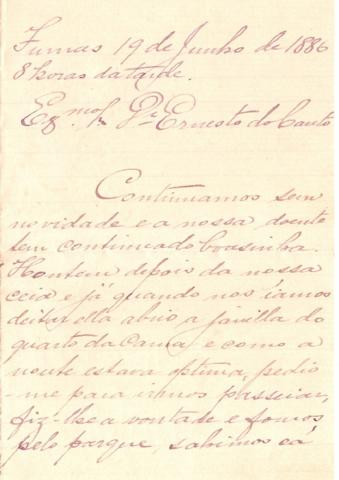 Furnas 19 de Junho de 1886
8 horas da tarde.
Exmo Sr Dr Ernesto do Canto
Continuamos sem
novidade e a nossa doente
tem continuado boasinha.
Hontem depois da nossa
ceia e já quando nos iamos
deitar ella abrio a janella do
quarto da Cama e como a
noute estava optima, pedio
-me para irmos passeiar,
fiz-lhe a vontade e fomos
pelo parque, sahimos cá